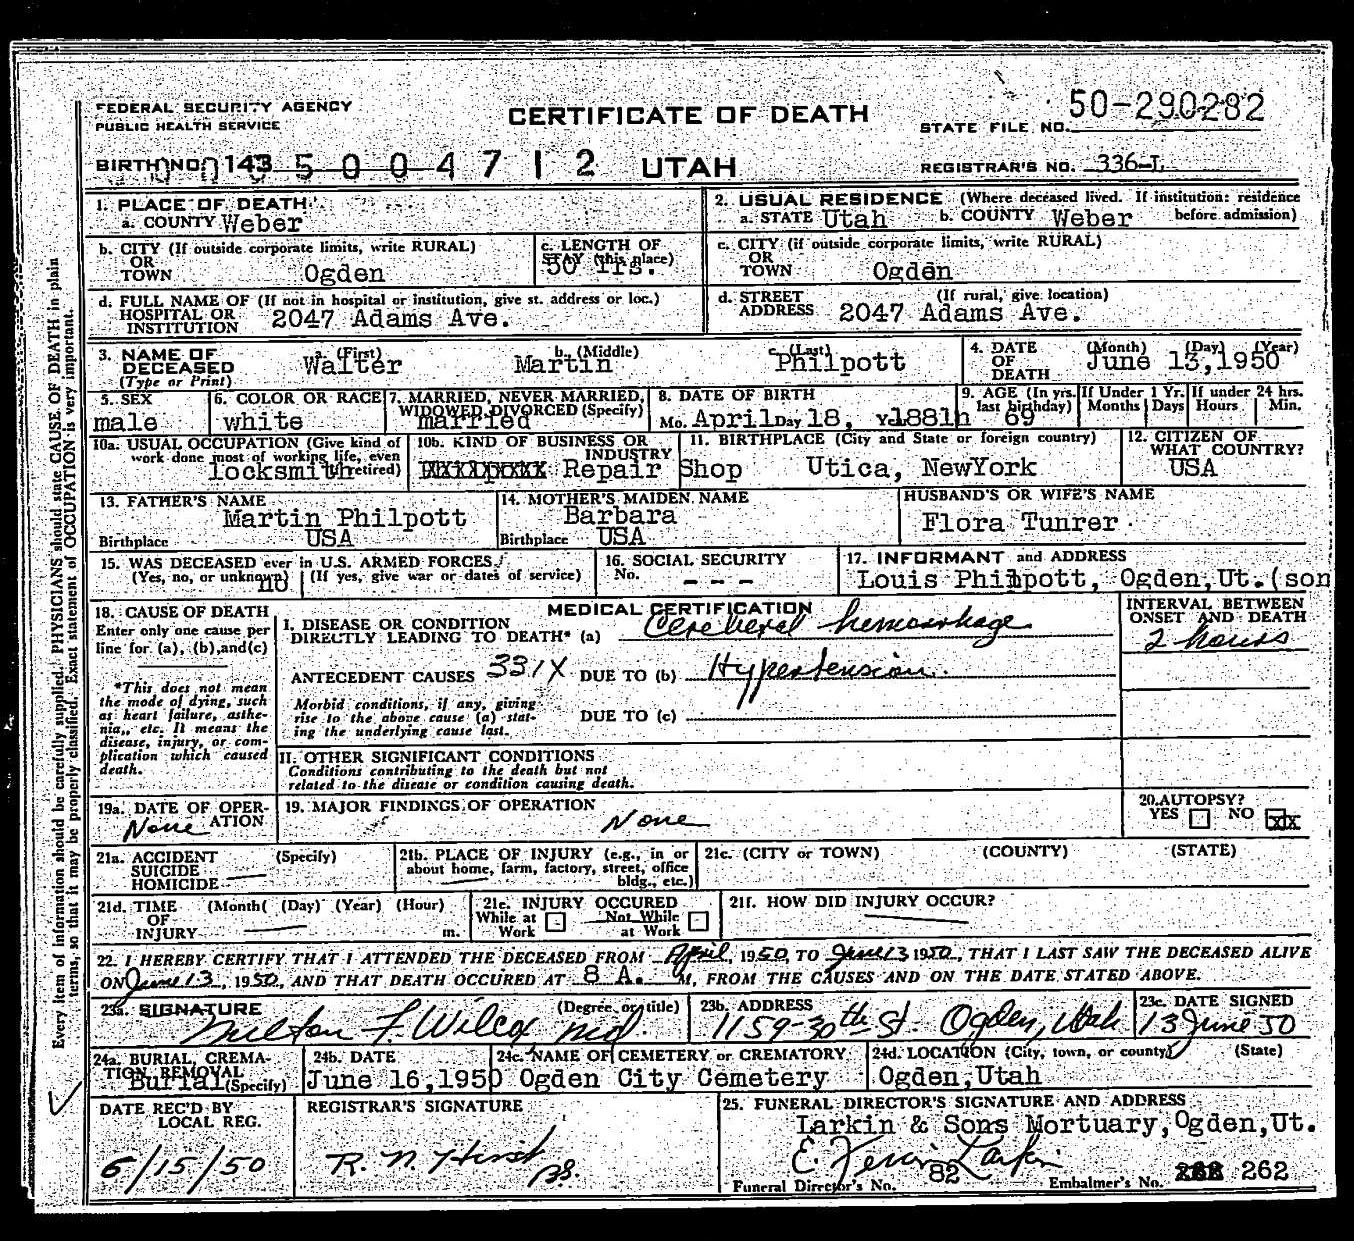 FEDERAL SECURITY AGENCY
PUBLIC HEALTH SERVICE
CERTIFICATE OF DEATH
STATE FILE NO. 50-290282
BIRTH NO. 143 5 0 0 4 7 1 2 UTAH
REGISTRAR'S NO. 336-L
1. PLACE OF DEATH
a. COUNTY Weber
2. USUAL RESIDENCE (Where deceased lived. If institution: residence before admission)
a. STATE Utah b. COUNTY Weber
b. CITY (If outside corporate limits, write RURAL)
OR
TOWN Ogden
c. LENGTH OF
STAY (this place)
50 Yrs.
c. CITY (if outside corporate limits, write RURAL)
OR
TOWN Ogden
d. FULL NAME OF (If not in hospital or institution, give st. address or loc.)
HOSPITAL OR
INSTITUTION 2047 Adams Ave.
d. STREET (If rural, give location)
ADDRESS 2047 Adams Ave.
3. NAME OF
DECEASED
(Type or Print)
a. (First) Walter b. (Middle) Martin c. (Last) Philpott
4. DATE
OF
DEATH
(Month) (Day) (Year)
June 13,1950
5. SEX
male
6. COLOR OR RACE
white
7. MARRIED, NEVER MARRIED,
WIDOWED, DIVORCED (Specify)
married
8. DATE OF BIRTH
Mo. April Day 18, Yr. 1881
9. AGE (In yrs.
last birthday) 69
If Under 1 Yr.
Months Days
If under 24 hrs.
Hours Min.
10a. USUAL OCCUPATION (Give kind of
work done most of working life, even
if retired)
locksmith
10b. KIND OF BUSINESS OR
INDUSTRY
Repair Shop
11. BIRTHPLACE (City and State or foreign country)
Utica, NewYork
12. CITIZEN OF
WHAT COUNTRY?
USA
13. FATHER'S NAME
Martin Philpott
Birthplace USA
14. MOTHER'S MAIDEN NAME
Barbara
Birthplace USA
HUSBAND'S OR WIFE'S NAME
Flora Tunrer
15. WAS DECEASED ever in U.S. ARMED FORCES?
(Yes, no, or unknown) (If yes, give war or dates of service)
no
16. SOCIAL SECURITY
No. - - -
17. INFORMANT and ADDRESS
Louis Philpott, Ogden,Ut.(son
18. CAUSE OF DEATH
Enter only one cause per
line for (a), (b),and(c)
*This does not mean
the mode of dying, such
as heart failure, asthe-
nia,, etc. It means the
disease, injury, or com-
plication which caused
death.
MEDICAL CERTIFICATION
I. DISEASE OR CONDITION
DIRECTLY LEADING TO DEATH* (a) Cerebral hemorrhage
ANTECEDENT CAUSES 331X DUE TO (b) Hypertension
Morbid conditions, if any, giving
rise to the above cause (a) stat-
ing the underlying cause last.
DUE TO (c)
INTERVAL BETWEEN
ONSET AND DEATH
2 hours
II. OTHER SIGNIFICANT CONDITIONS
Conditions contributing to the death but not
related to the disease or condition causing death.
19a. DATE OF OPER-
ATION
None
19. MAJOR FINDINGS OF OPERATION
None
20. AUTOPSY?
YES NO xx
21a. ACCIDENT (Specify)
SUICIDE
HOMICIDE
21b. PLACE OF INJURY (e.g., in or
about home, farm, factory, street, office
bldg., etc.)
21c. (CITY or TOWN) (COUNTY) (STATE)
21d. TIME (Month( (Day) (Year) (Hour)
OF
INJURY m.
21e. INJURY OCCURED
While at Work Not While at Work
21f. HOW DID INJURY OCCUR?
22. I HEREBY CERTIFY THAT I ATTENDED THE DECEASED FROM April, 1950, TO June 13 1950, THAT I LAST SAW THE DECEASED ALIVE
ON June 13, 1950, AND THAT DEATH OCCURED AT 8 A. M, FROM THE CAUSES AND ON THE DATE STATED ABOVE.
23a. SIGNATURE (Degree or title)
Milton F. Wilcox MD.
23b. ADDRESS
1159-30th St. Ogden, Utah
23c. DATE SIGNED
13 June 50
24a. BURIAL, CREMA-
TION REMOVAL
(Specify)
Burial
24b. DATE
June 16,1950
24c. NAME OF CEMETERY or CREMATORY
Ogden City Cemetery
24d. LOCATION (City, town, or county) (State)
Ogden,Utah
DATE REC'D BY
LOCAL REG.
6/15/50
REGISTRAR'S SIGNATURE
R. N. Hirst
25. FUNERAL DIRECTOR'S SIGNATURE AND ADDRESS
Larkin & Sons Mortuary,Ogden,Ut.
Larkin
Funeral Director's No. 82 Embalmer's No. 262
Every item of information should be carefully supplied. PHYSICIANS should state CAUSE OF DEATH in plain
terms, so that it may be properly classified. Exact statement of OCCUPATION is very important.